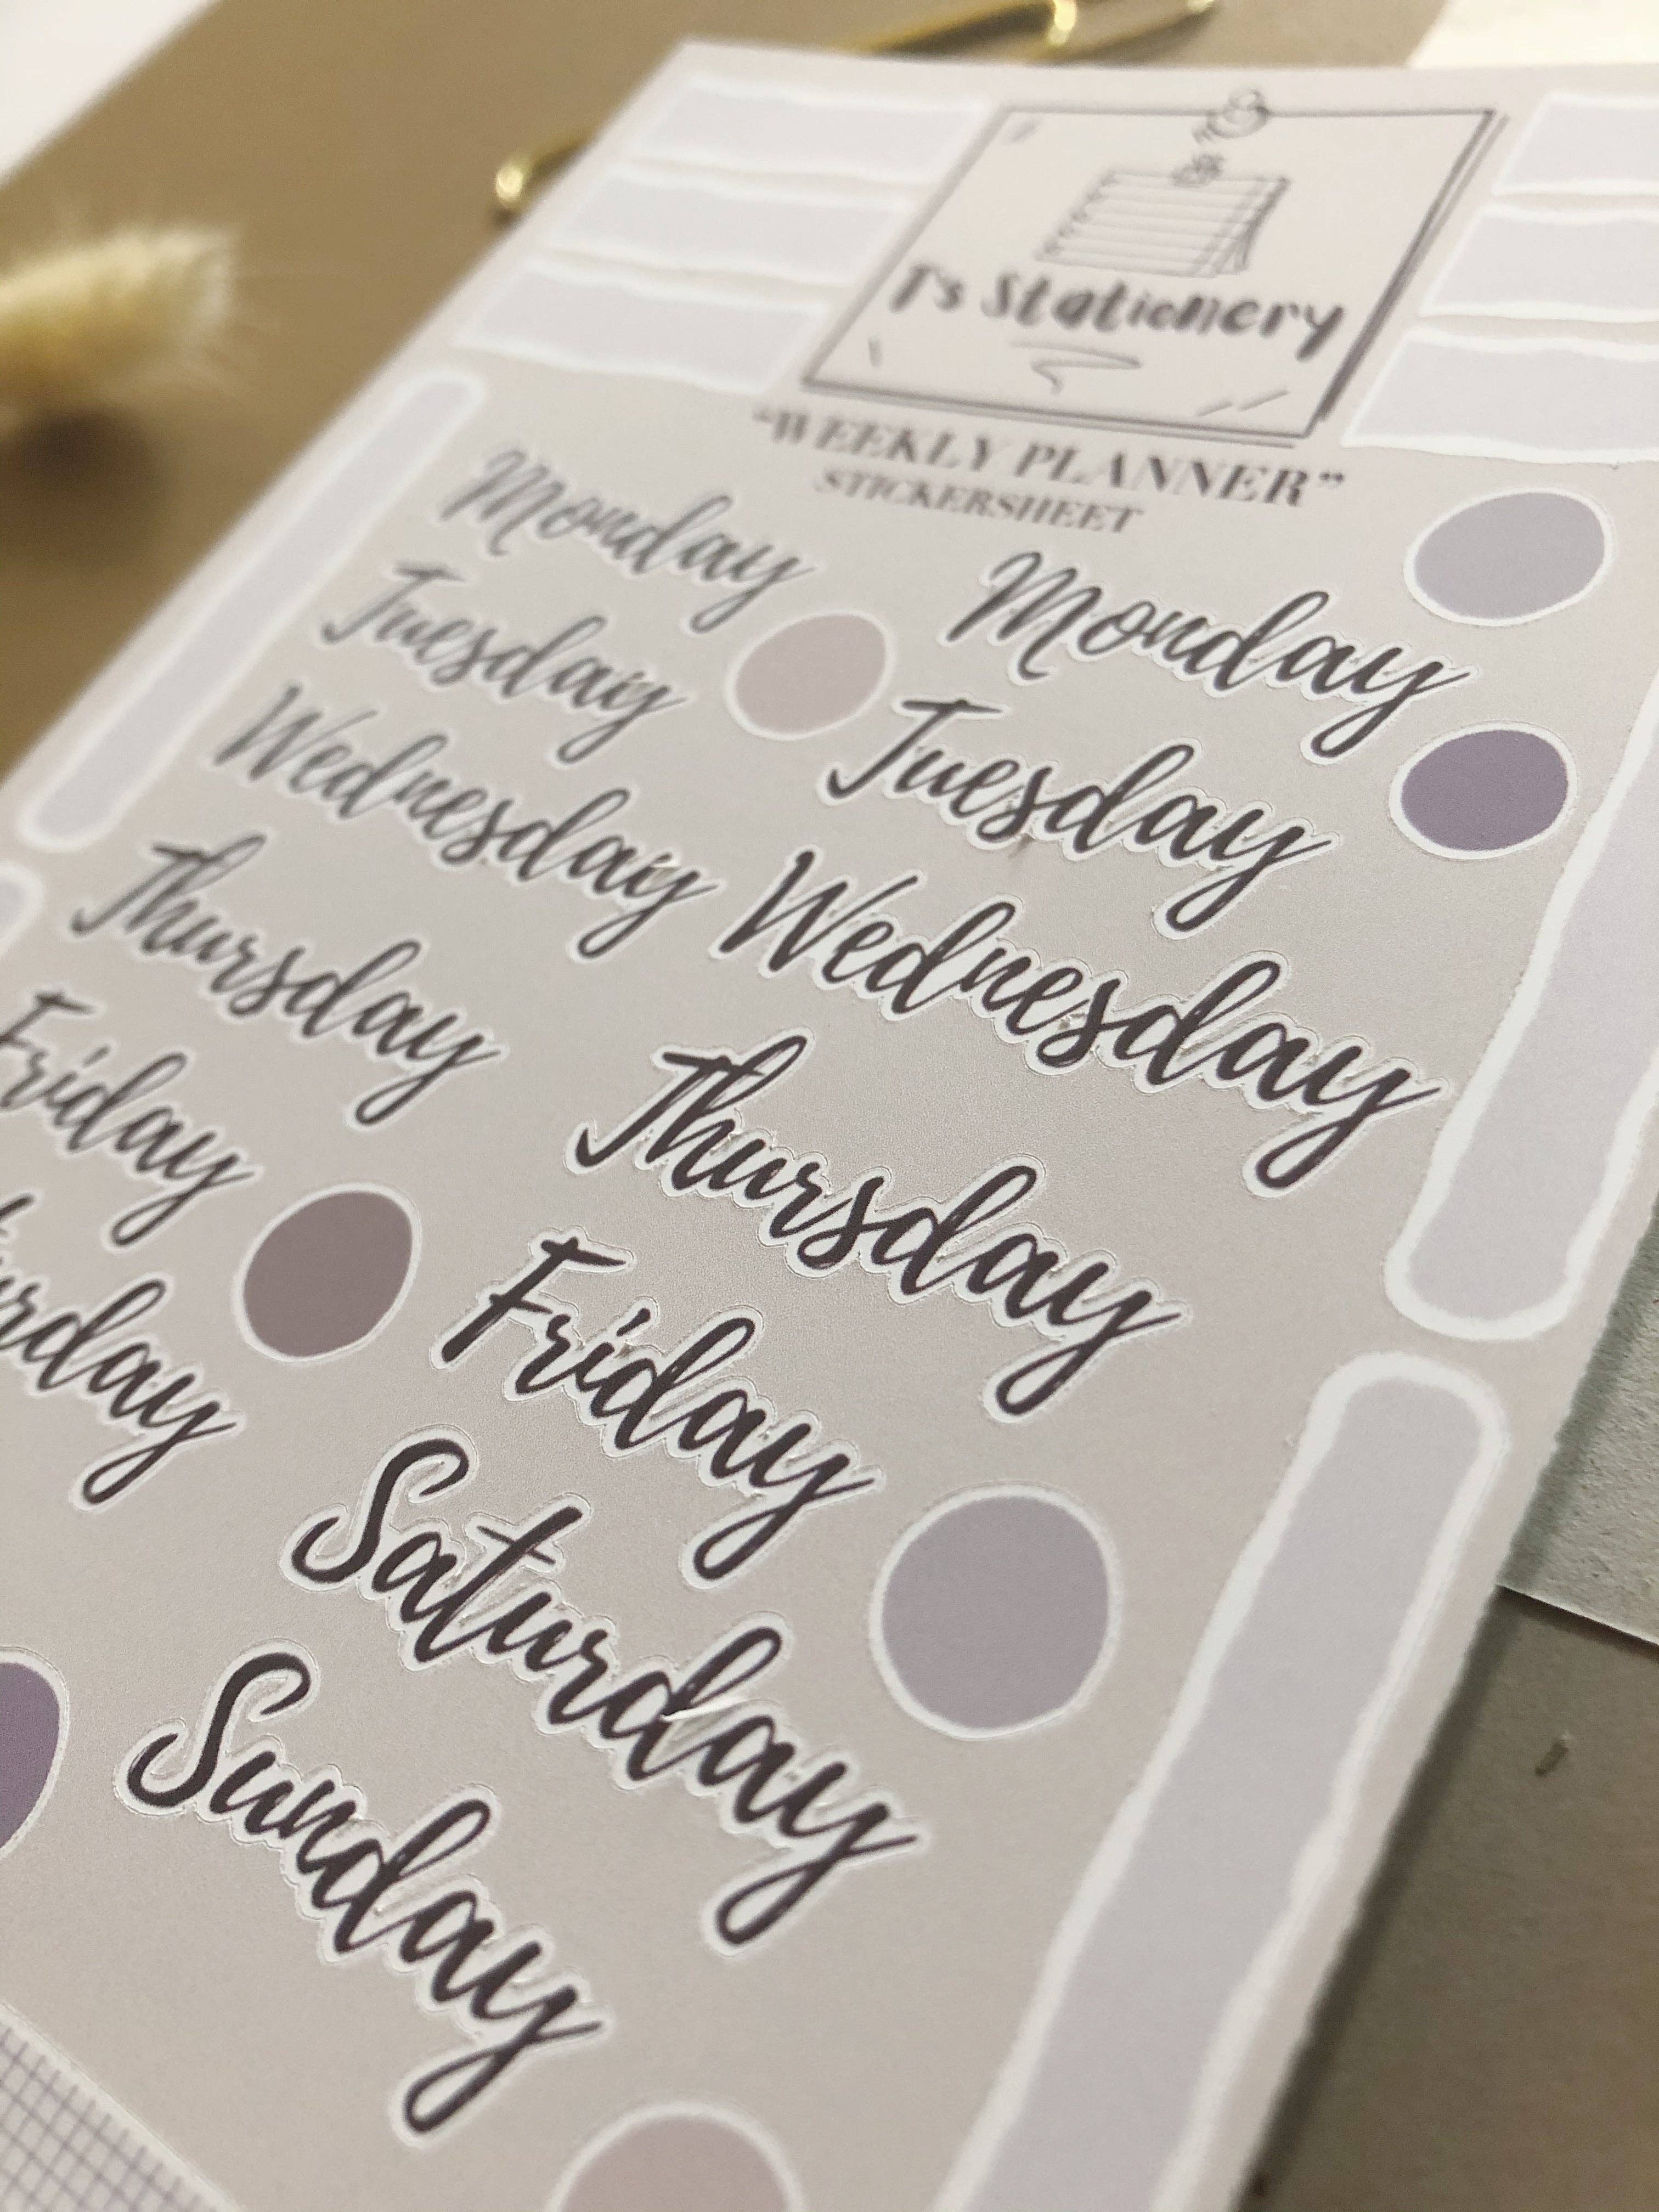 T's Stationery
"WEEKLY PLANNER"
STICKERSHEET
Monday
Tuesday
Wednesday
Thursday
Friday
urday
Monday
Tuesday
Wednesday
Thursday
Friday
Saturday
Sunday